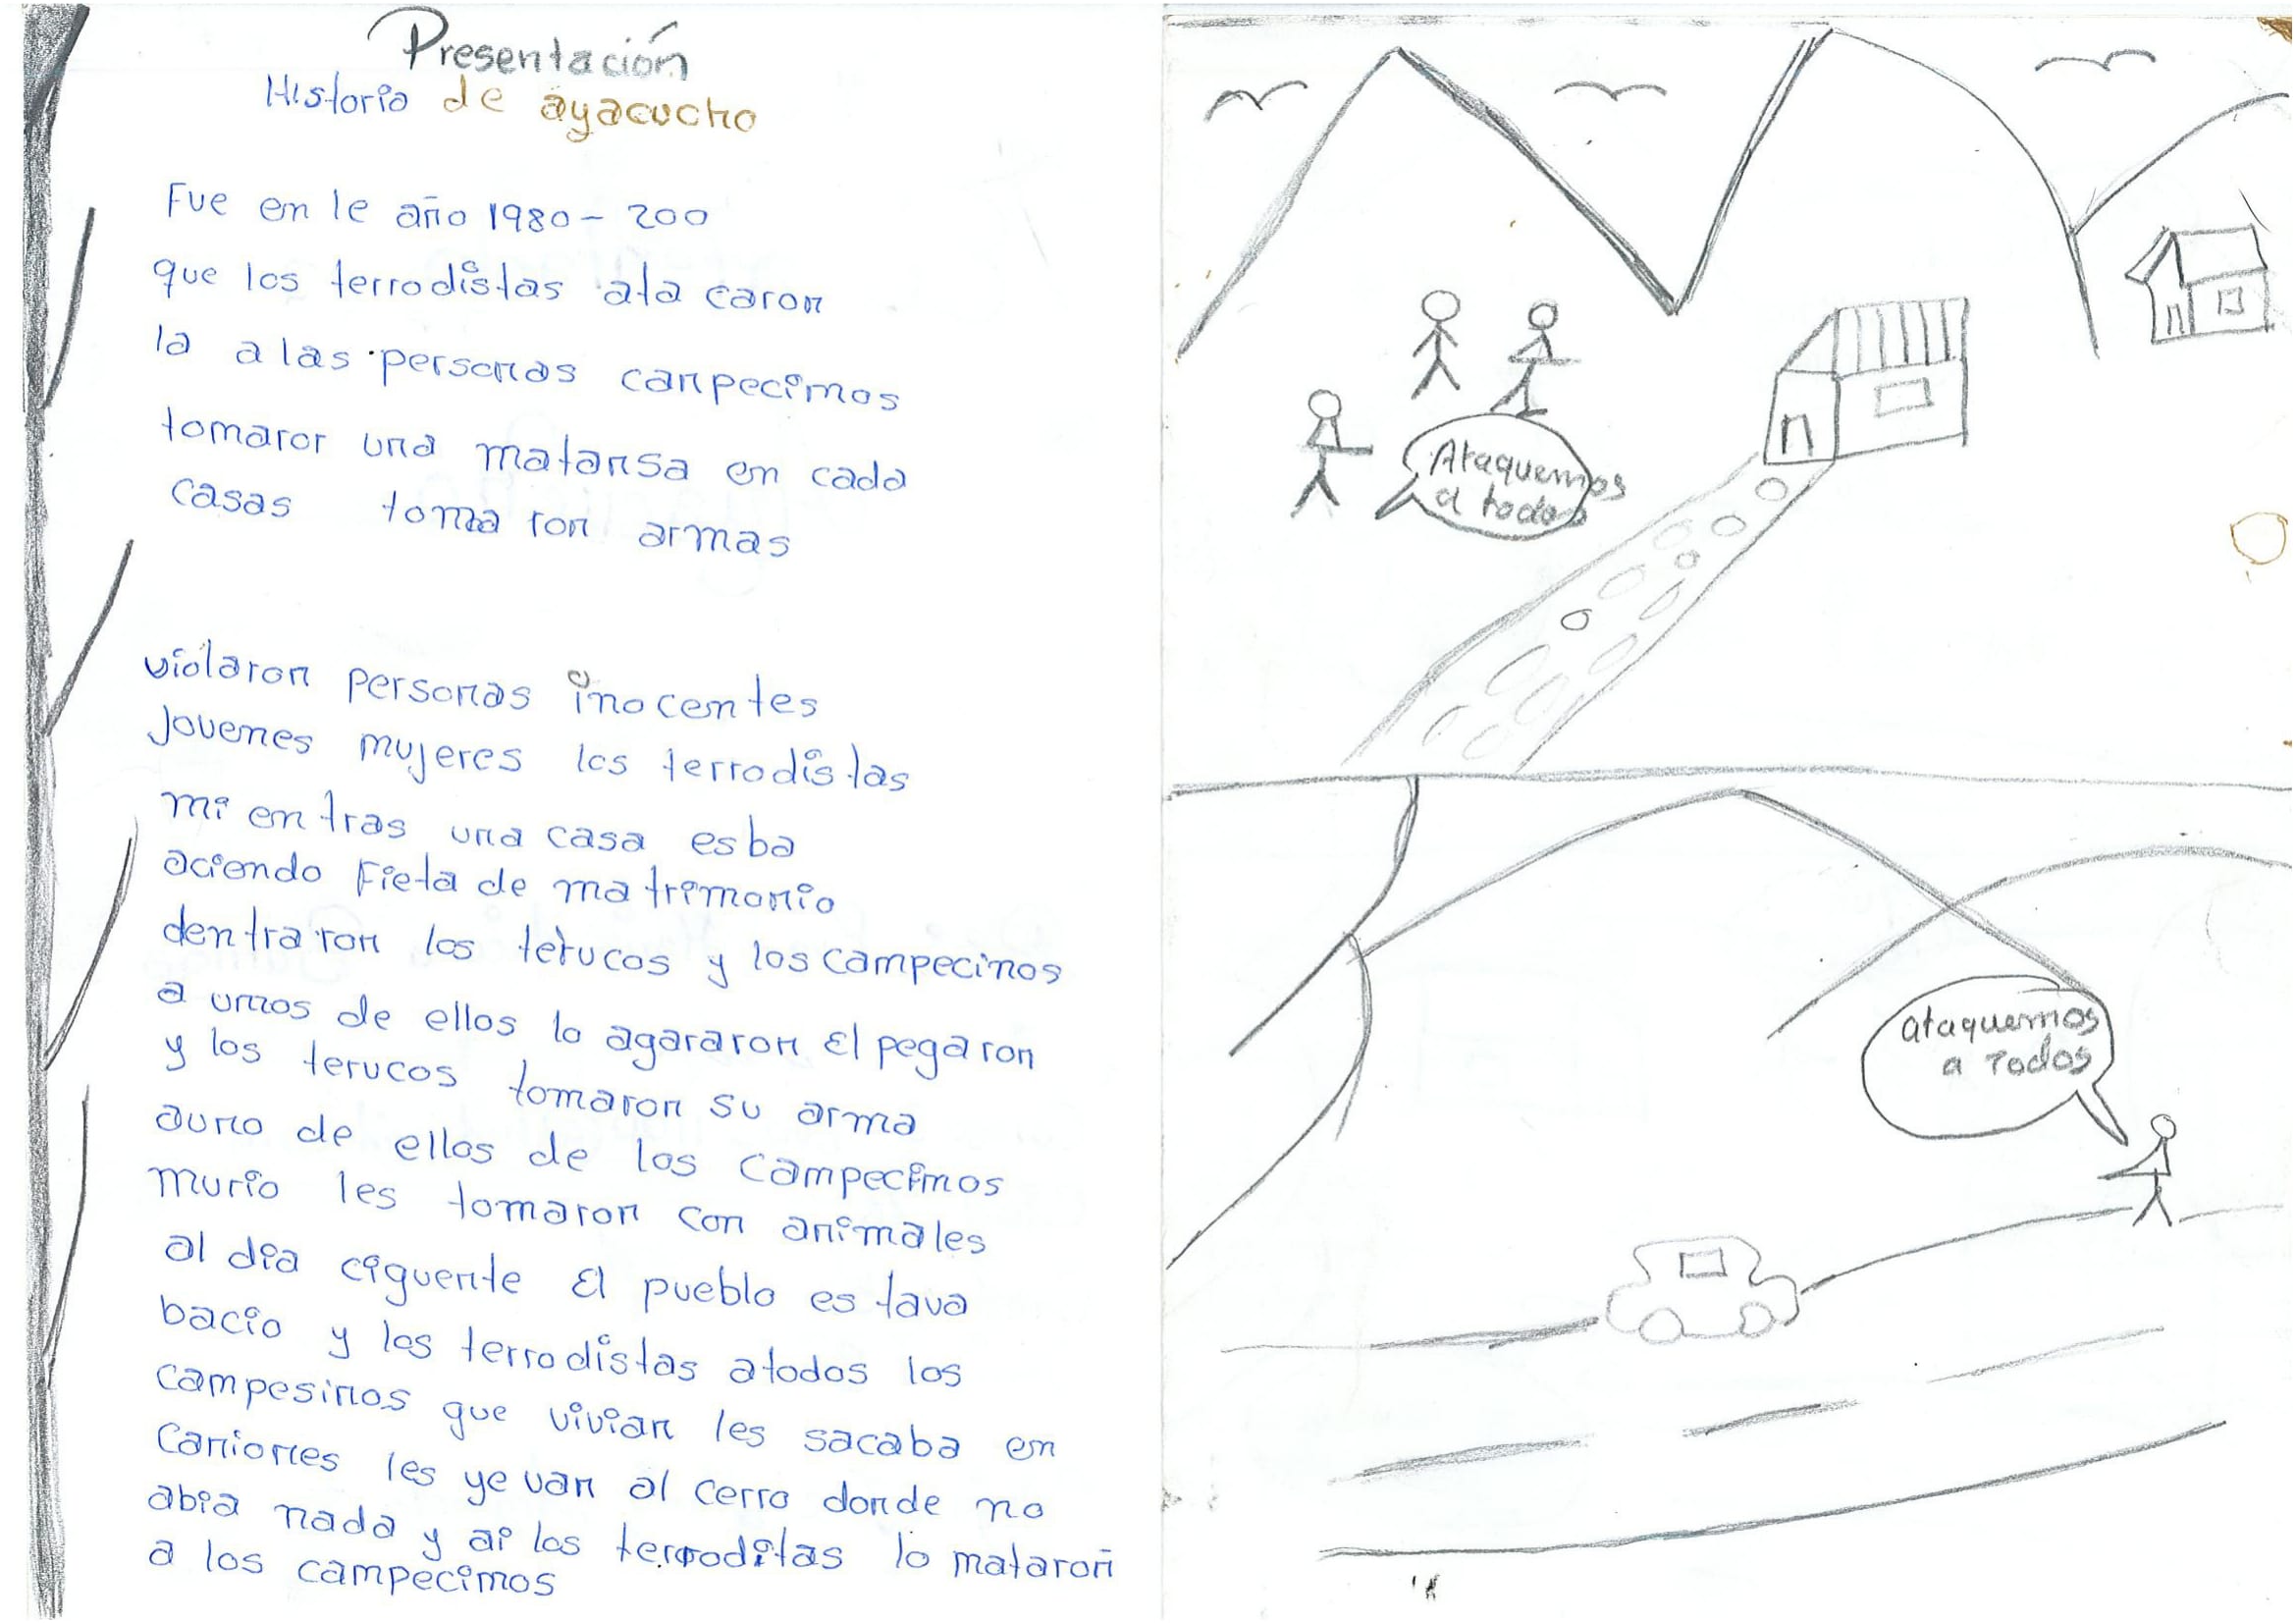 Presentación
Historia de ayacucho
Fue en le año 1980 - 200
que los terrodistas ata caron
la a las personas canpecinos
tomaror una matansa en cada
casas toma ron armas
violaron personas inocentes
Jovenes mujeres los terrodistas
mi en tras una casa esba
aciendo Fieta de ma trimonio
dentra ron los terucos y los campecinos
a unos de ellos lo agararon El pegaron
y los terucos tomaron su arma
auno de ellos de los campecinos
murio les tomaron con animales
al dia ciguente El pueblo es tava
bacio y los terrodistas atodos los
campesinos que vivian les sacaba en
Caniones les ye van al cerro donde no
abia nada y ai los terroditas lo mataron
a los campecinos
Ataquemos
a todos
ataquemos
a Todos